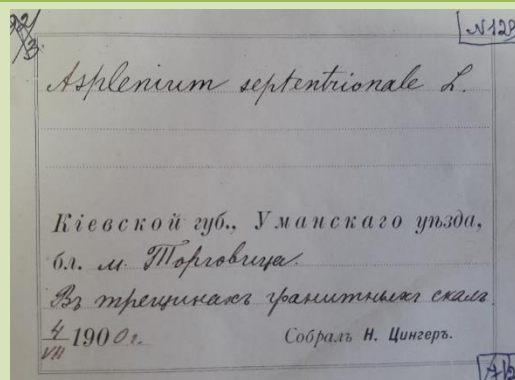 92/3
N129
Asplenium septentrionale L.
Кіевской губ., Уманскаго уѣзда,
бл. м. Торговица.
Въ трещинахъ гранитныхъ скалъ
4/VII 1900 г.
Собралъ Н. Цингеръ.